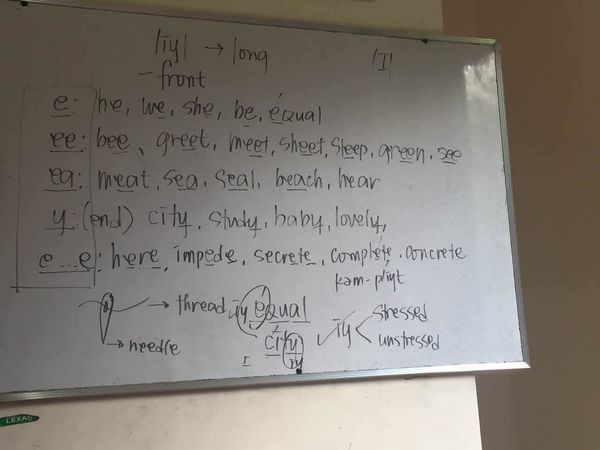 |īy| → long /I/
- front
e: he, we, she, be, équal
ee: bee, greet, meet, sheet, sleep, green, see
ea: meat, sea, seal, beach, hear
y: (end) city, study, baby, lovely,
e...e: here, impede, secrete, complete, concrete
kəm-plíyt
→ thread īy équal stressed
→ needle city ✓ īy < unstressed
I īy
LEXAL